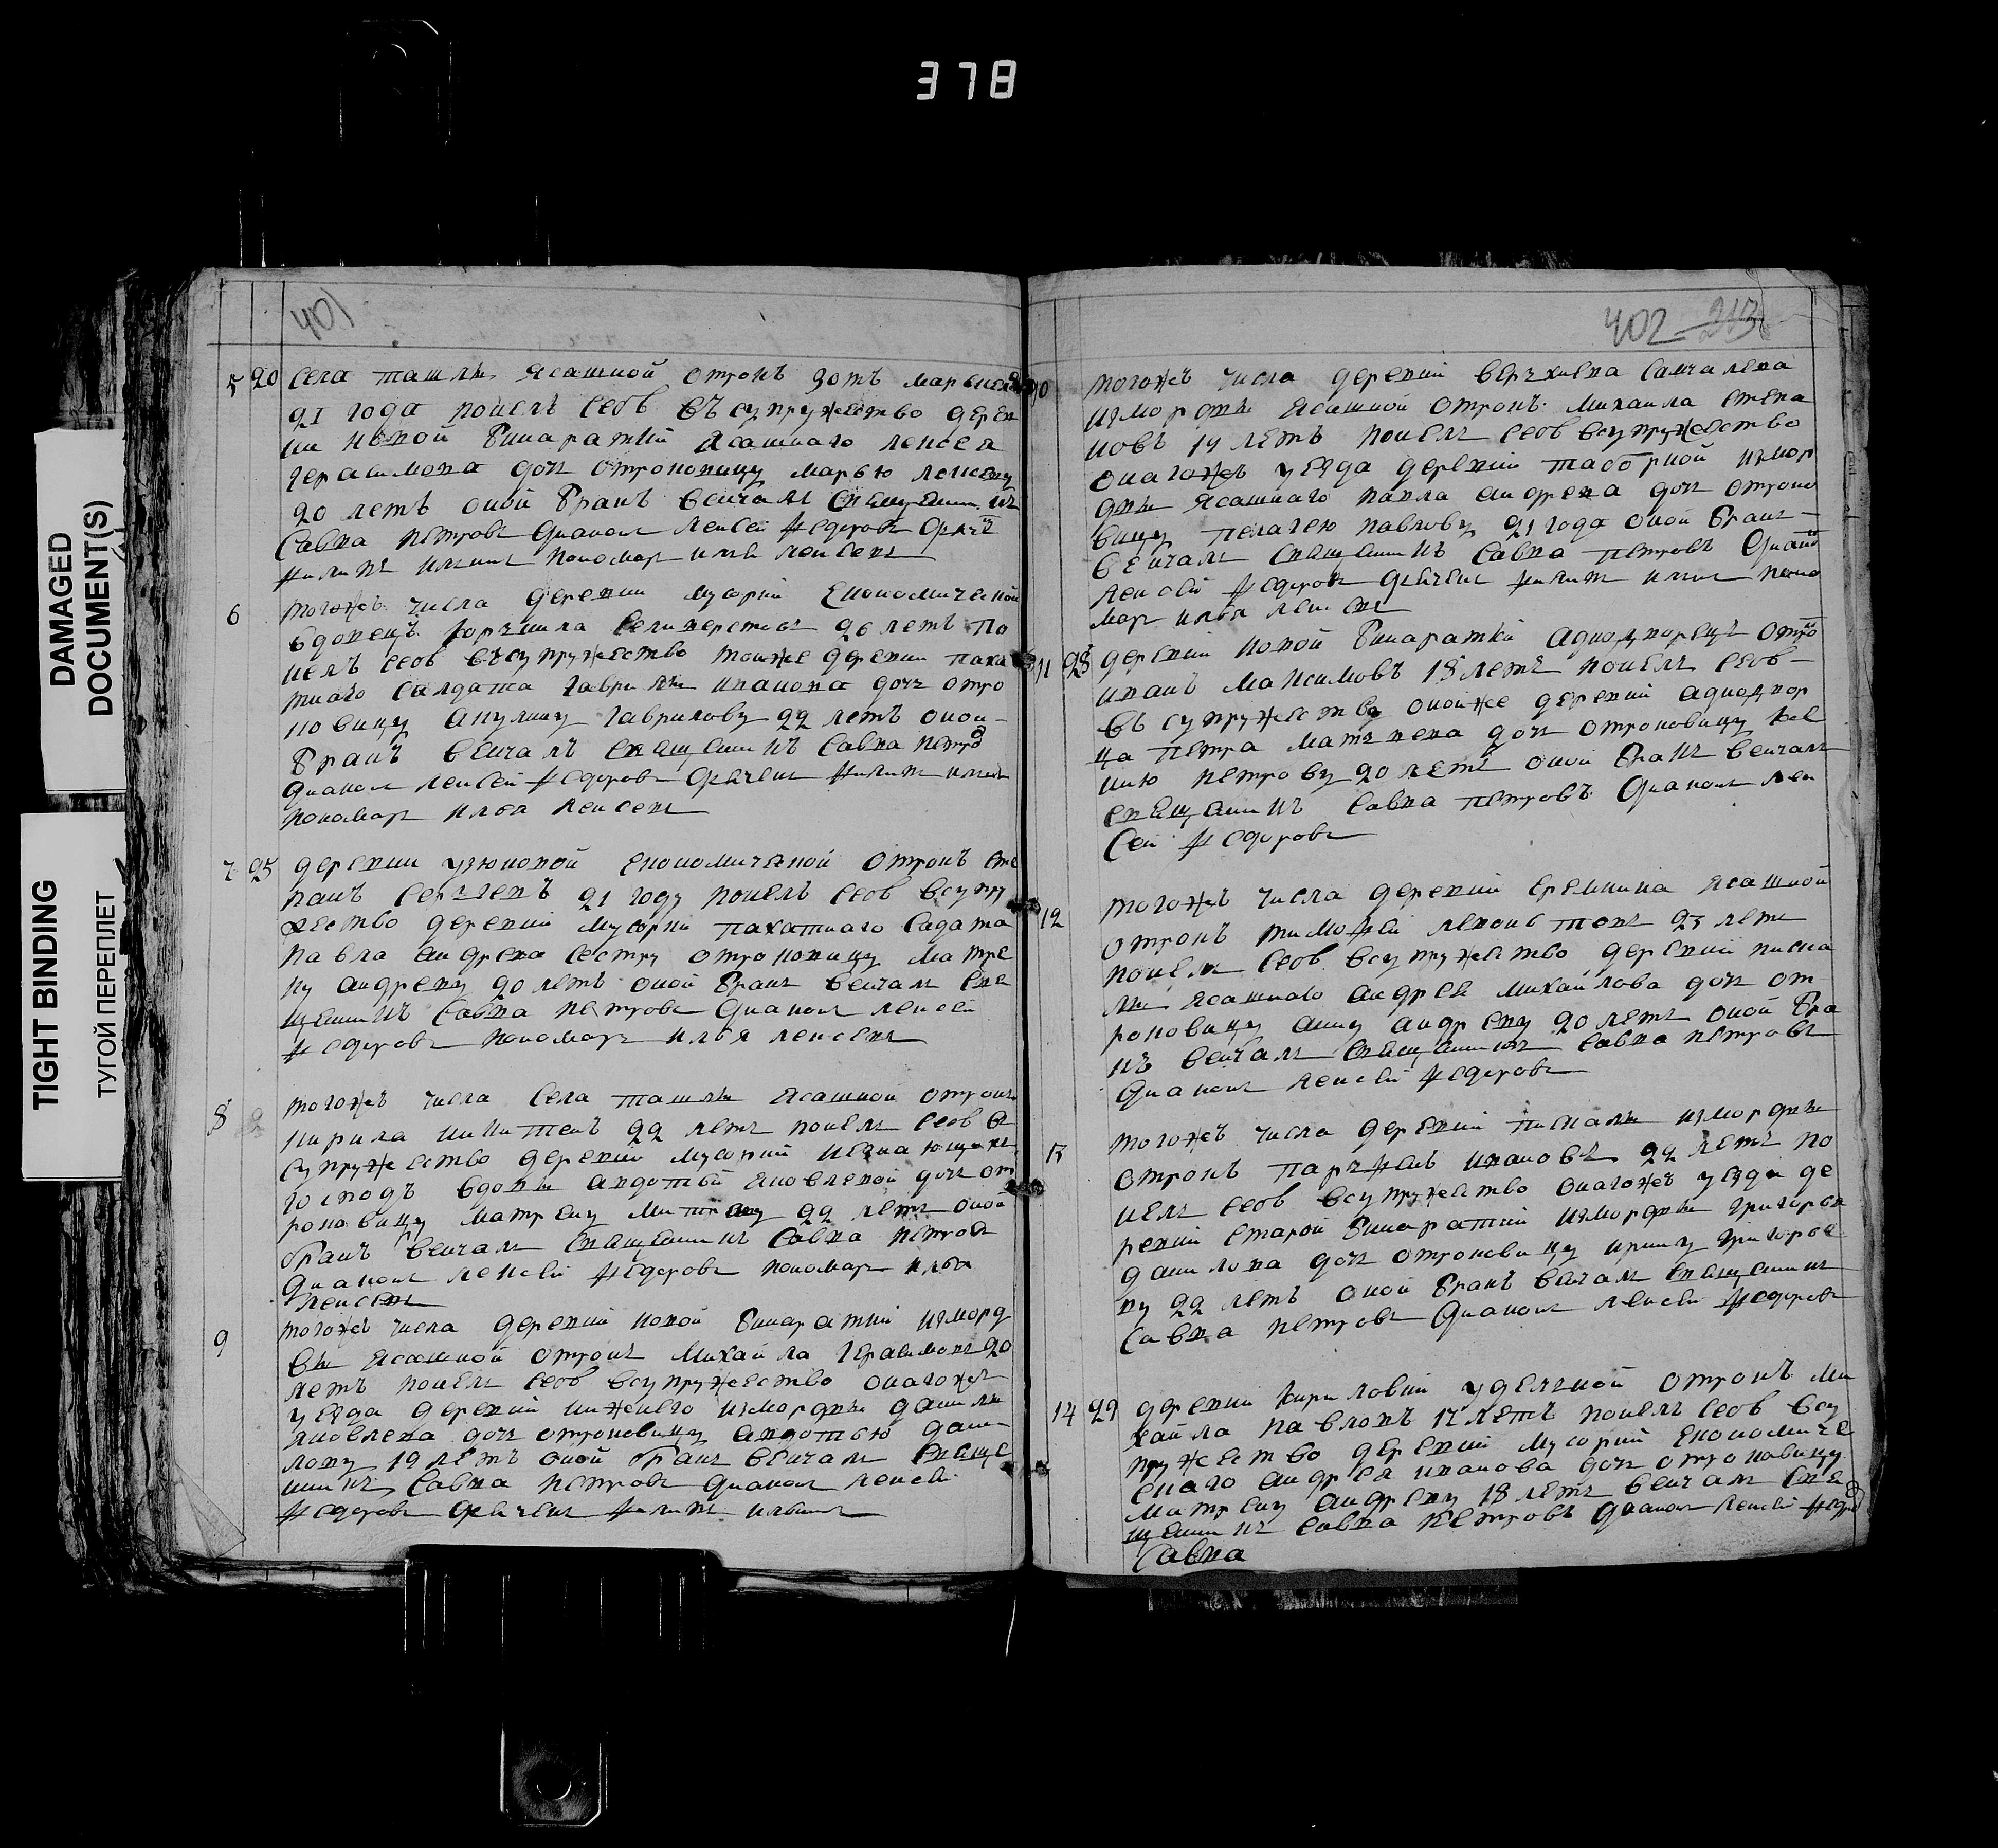 378
DAMAGED
DOCUMENT(S)
TIGHT BINDING
ТУГОЙ ПЕРЕПЛЕТ
401
5 20 Села ташлы ясашной отрокъ зотъ
21 года понелъ себѣ въ супружество дерев
ни новой бинаратки ясашнаго алексея
герасимова дочь отроковицу марью
20 летъ оной бракъ венчалъ священникъ
Савва петровъ диаконъ алексей федоровъ
филипъ ильинъ пономарь илья
6 тогожъ числа деревни мусорки економической
вдовецъ 26 летъ по
нелъ себѣ въ супружество тойже деревни паха
тнаго салдата гаврилы иванова дочь отро
новицу акулину гаврилову 22 летъ оной
бракъ венчалъ священникъ Савва петро
диаконъ алексей федоровъ дьячекъ филипъ ильинъ
пономарь илья
7 25 деревни узюковой економической отрокъ сте
панъ сергеевъ 21 году понелъ себѣ всупру
жество деревни мусорки пахатнаго садата
павла андреева сестру отроковицу матре
ну андрееву 20 летъ оной бракъ венчалъ свя
щенникъ Савва петровъ диаконъ алексей
федоровъ пономарь илья
8 тогожъ числа Села ташлы ясашной отрокъ
кирила никитенъ 22 летъ понелъ себѣ в
супружество деревни мусорки
господъ вдовы авдотьи яковлевой дочь от
роковицу матрену 22 летъ оной
бракъ венчалъ священникъ Савва петровъ
диаконъ алексей федоровъ пономарь илья
9 тогожъ числа деревни новой бинаратки изморд
вы ясашной отрокъ михайла герасимовъ 20
летъ понелъ себѣ всупружество онагожъ
уезда деревни нижнего измордвы данилы
яковлева дочь отроковицу авдотью дани
лову 19 летъ оной бракъ венчалъ свяще
нникъ Савва петровъ диаконъ алексей
федоровъ дьячекъ филипъ ильинъ
402 213
10 тогожъ числа деревни верхнева санчалева
измордвы ясашной отрокъ михаила степа
новъ 19 летъ понелъ себѣ всупружество
онагожъ уезда деревни таборной измор
двы ясашнаго павла андреева дочь отроко
вицу пелагею павлову 21 года оной бракъ
венчалъ священникъ Савва петровъ диако
алексей федоровъ дьячекъ филипъ ильинъ поно
марь илья
11 28 деревни новой бинаратки аднодворецъ отро
иванъ максимовъ 18 летъ понелъ себѣ
въ супружество онойже деревни аднодвор
ца петра матвеева дочь отроковицу
нию петрову 20 летъ оной бракъ венчалъ
священникъ Савва петровъ диаконъ алек
сей федоровъ
12 тогожъ числа деревни еремкина ясашной
отрокъ тимофей 23 летъ
понелъ себѣ всупружество деревни писка
лы ясашнаго андрея михайлова дочь от
роковицу анну андрееву 20 летъ оной бра
къ венчалъ священникъ Савва петровъ
диаконъ алексей федоровъ
13 тогожъ числа деревни пискалы измордвы
отрокъ парфенъ ивановъ 22 летъ по
нелъ себѣ всупружество онагожъ уезда де
ревни старой бинаратки измордвы григорья
данилова дочь отроковицу ирину григорье
ву 22 летъ оной бракъ венчалъ священникъ
Савва петровъ диаконъ алексей федоровъ
14 29 деревни кириловки удельной отрокъ ми
хайла павловъ 17 летъ понелъ себѣ всу
пружество деревни мусорки економиче
скаго андрея иванова дочь отроковицу
матрену андрееву 18 летъ венчалъ свя
щенникъ савва петровъ диаконъ алексей федоро
Савва